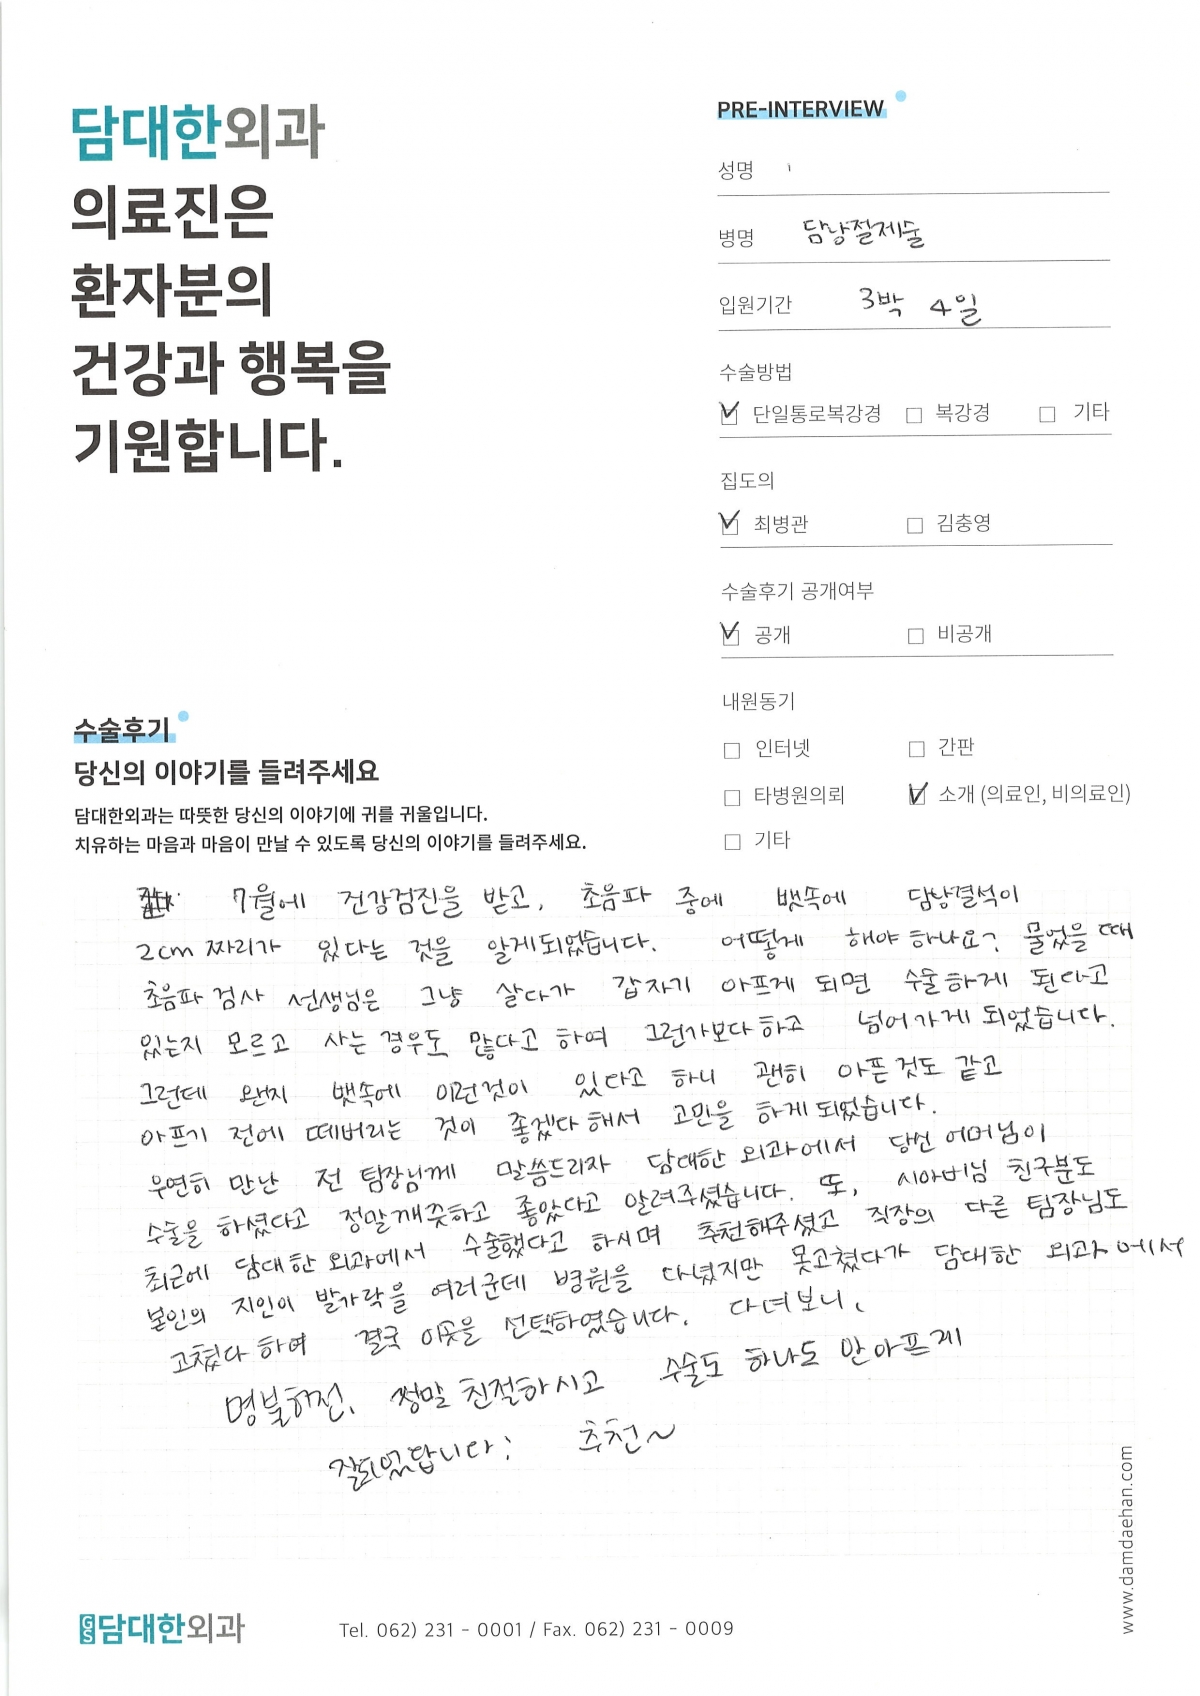 담대한외과
의료진은
환자분의
건강과 행복을
기원합니다.
PRE-INTERVIEW
성명
병명 담낭절제술
입원기간 3박 4일
수술방법
단일통로복강경 복강경 기타
집도의
최병관 김충영
수술후기 공개여부
공개 비공개
내원동기
인터넷 간판
타병원의뢰 소개 (의료인, 비의료인)
기타
수술후기
당신의 이야기를 들려주세요
담대한외과는 따뜻한 당신의 이야기에 귀를 귀울입니다.
치유하는 마음과 마음이 만날 수 있도록 당신의 이야기를 들려주세요.
7월에 건강검진을 받고, 초음파 중에 뱃속에 담낭결석이
2cm 짜리가 있다는 것을 알게되었습니다. 어떻게 해야 하나요? 물었을 때
초음파 검사 선생님은 그냥 살다가 갑자기 아프게 되면 수술하게 된다고
있는지 모르고 사는 경우도 많다고 하여 그런가보다하고 넘어가게 되었습니다.
그런데 왠지 뱃속에 이런것이 있다고 하니 괜히 아픈것도 같고
아프기 전에 떼버리는 것이 좋겠다 해서 고민을 하게되었습니다.
우연히 만난 전 팀장님께 말씀드리자 담대한 외과에서 당신 어머님이
수술을 하셨다고 정말깨끗하고 좋았다고 알려주셨습니다. 또, 시아버님 친구분도
최근에 담대한 외과에서 수술했다고 하시며 추천해주셨고 직장의 다른 팀장님도
본인의 지인이 발가락을 여러군데 병원을 다녔지만 못고쳤다가 담대한 외과에서
고쳤다 하여 결국 이곳을 선택하였습니다. 다녀보니,
명불허전, 정말 친절하시고 수술도 하나도 안아프게
잘되었답니다; 추천~
www.damdaehan.com
GS담대한외과 Tel. 062) 231 - 0001 / Fax. 062) 231 - 0009